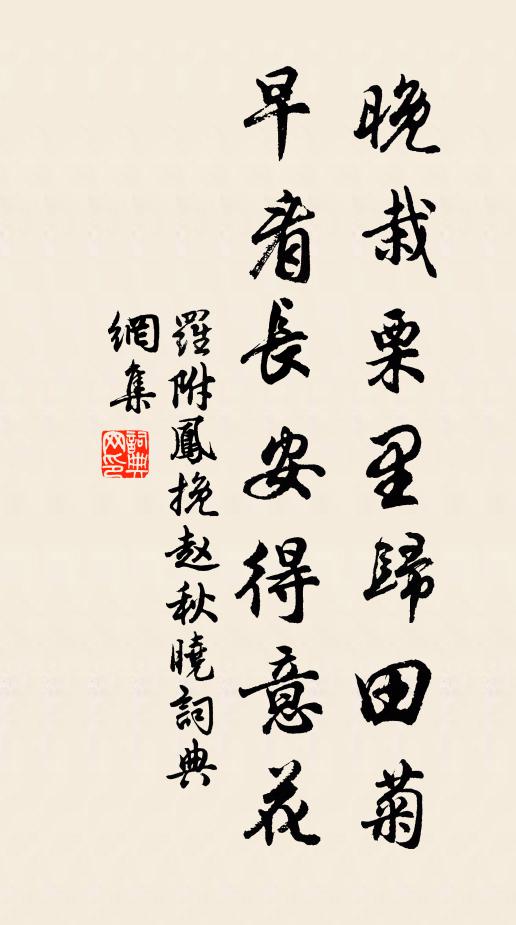 晚栽栗里歸田菊
早看長安得意花
羅附鳳挽赵秋曉詞典
網集
詞典
网印